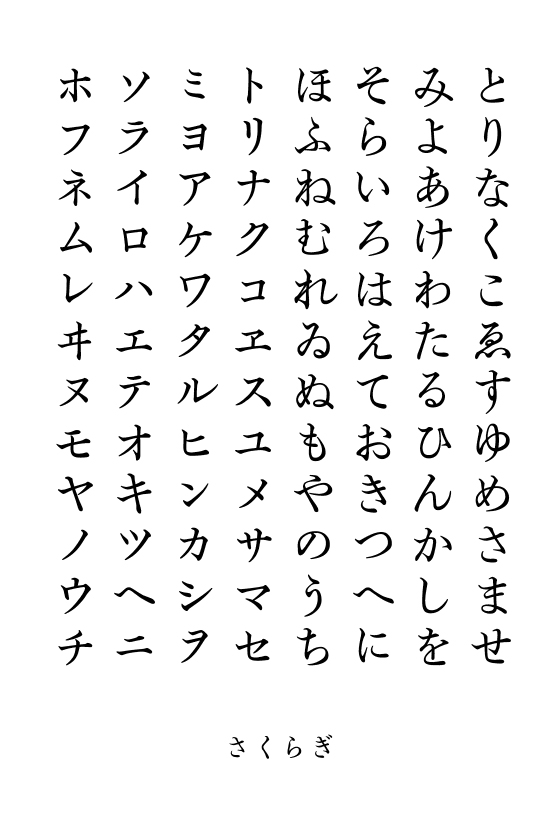 とりなくこゑすゆめさませ
みよあけわたるひんかしを
そらいろはえておきつへに
ほふねむれゐぬもやのうち
トリナクコヱスユメサマセ
ミヨアケワタルヒンカシヲ
ソライロハエテオキツヘニ
ホフネムレヰヌモヤノウチ
さくらぎ